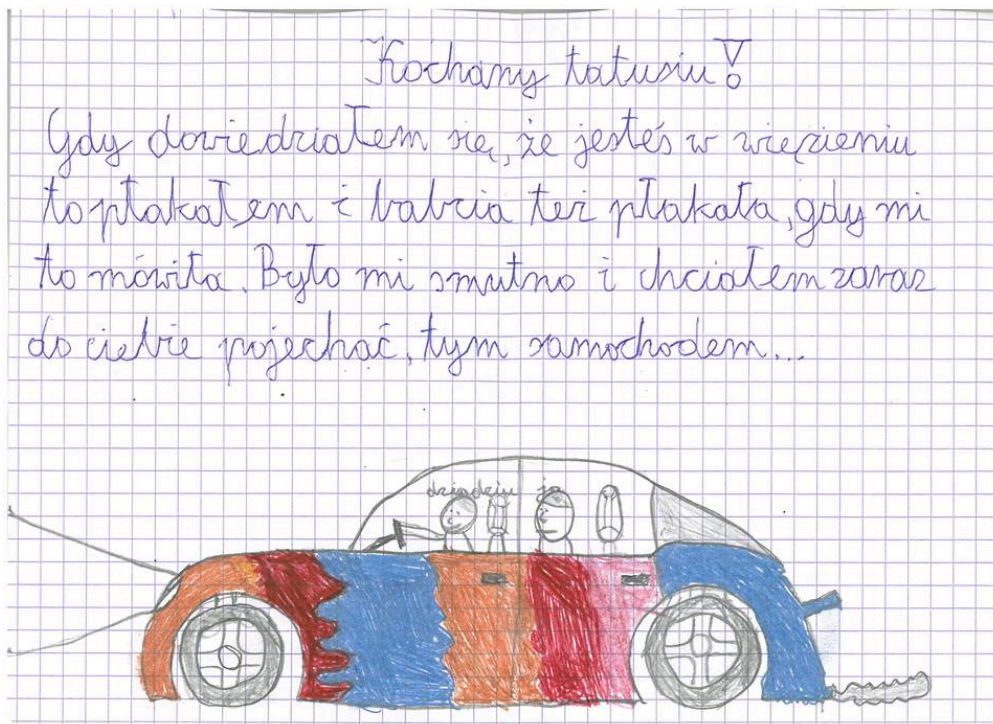 Kochany tatusiu!
Gdy dowiedziałem się, że jesteś w więzieniu
to płakałem i babcia też płakała, gdy mi
to mówiła. Było mi smutno i chciałem zaraz
do ciebie pojechać, tym samochodem...
dziadziu ja